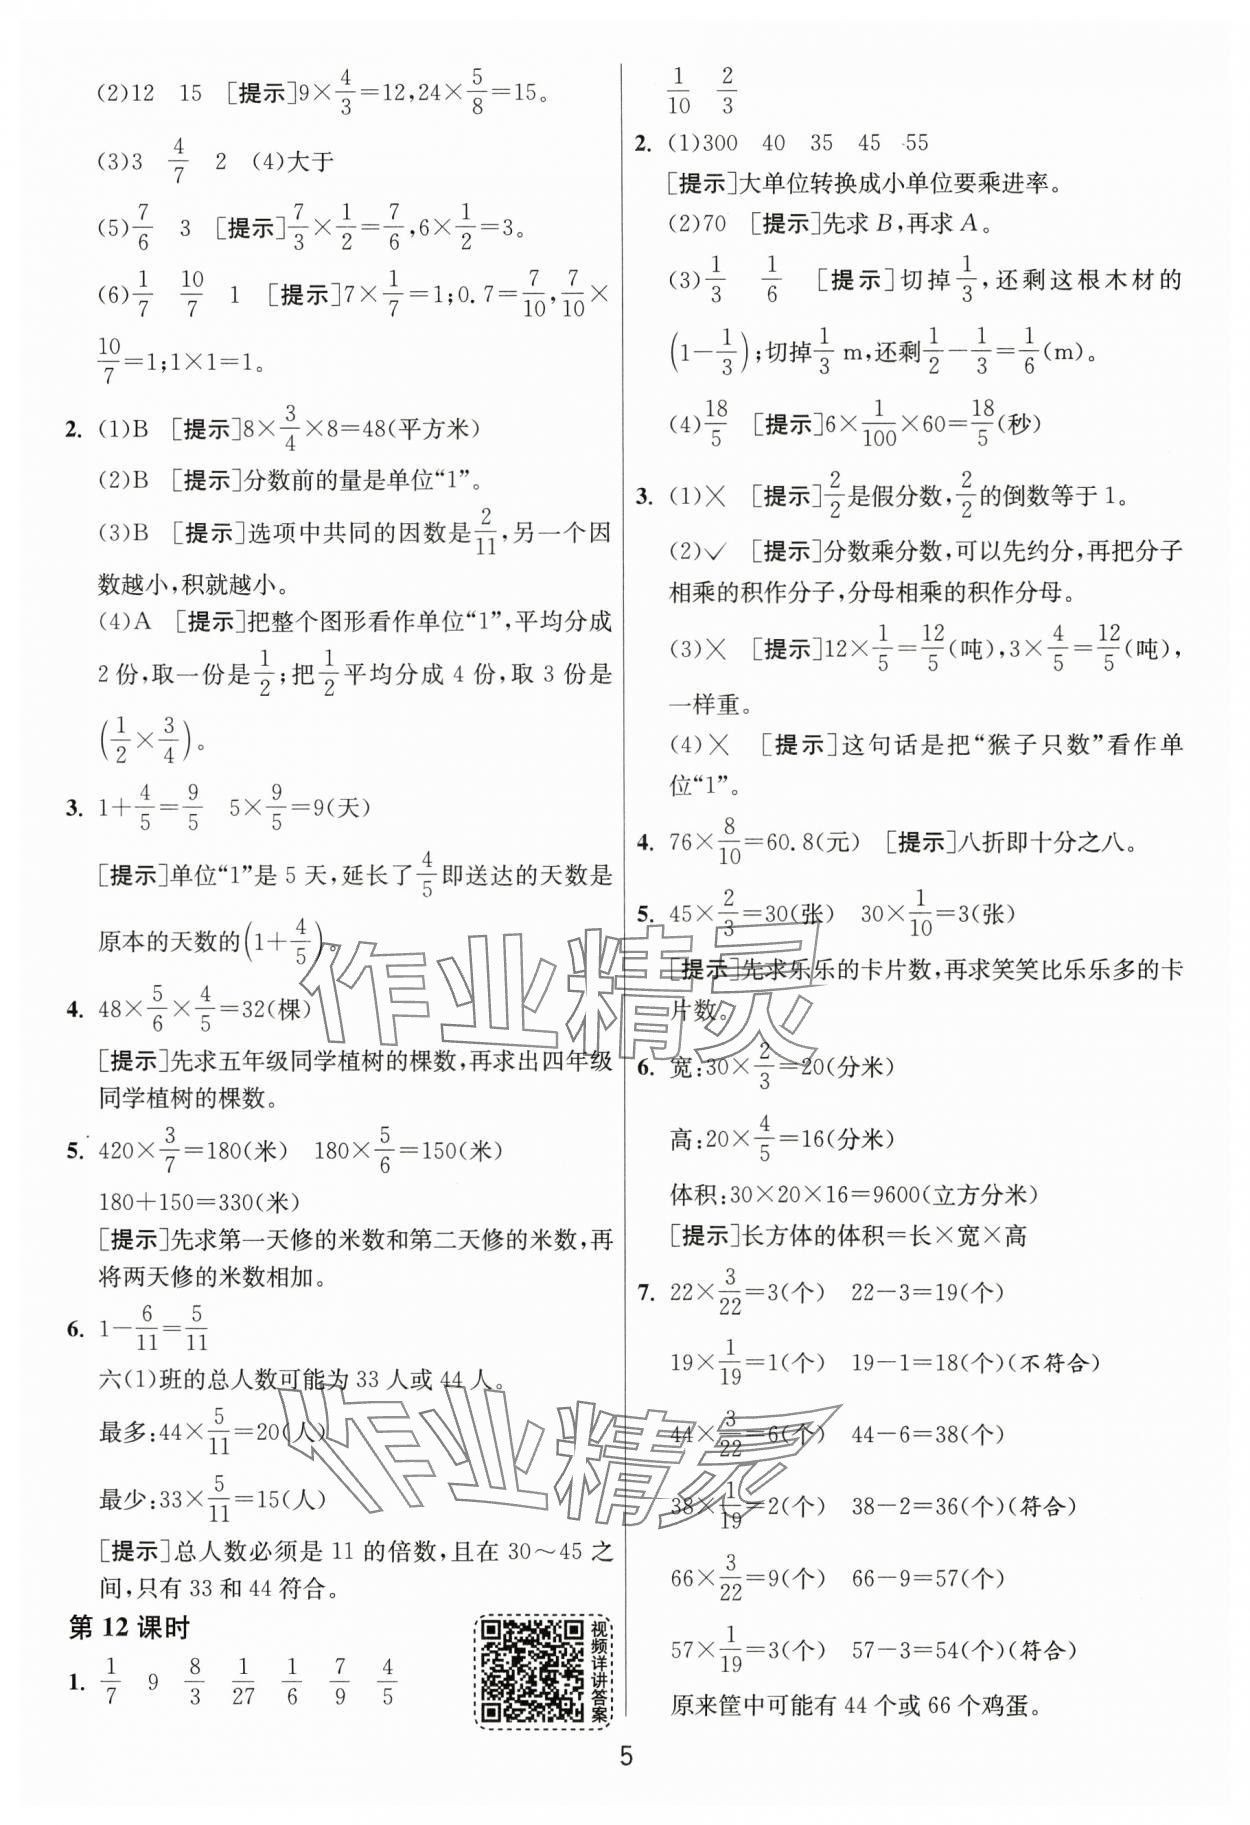 (2)12 15 [提示]9×4/3=12,24×5/8=15。
(3)3 4/7 2 (4)大于
(5)7/6 3 [提示]7/3×1/2=7/6,6×1/2=3。
(6)1/7 10/7 1 [提示]7×1/7=1;0.7=7/10,7/10×
10/7=1;1×1=1。
2. (1)B [提示]8×3/4×8=48(平方米)
(2)B [提示]分数前的量是单位“1”。
(3)B [提示]选项中共同的因数是2/11,另一个因
数越小,积就越小。
(4)A [提示]把整个图形看作单位“1”,平均分成
2份,取一份是1/2;把1/2平均分成4份,取3份是
(1/2×3/4)。
3. 1+4/5=9/5 5×9/5=9(天)
[提示]单位“1”是5天,延长了4/5即送达的天数是
原本的天数的(1+4/5)。
4. 48×5/6×4/5=32(棵)
[提示]先求五年级同学植树的棵数,再求出四年级
同学植树的棵数。
5. 420×3/7=180(米) 180×5/6=150(米)
180+150=330(米)
[提示]先求第一天修的米数和第二天修的米数,再
将两天修的米数相加。
6. 1-6/11=5/11
六(1)班的总人数可能为33人或44人。
最多:44×5/11=20(人)
最少:33×5/11=15(人)
[提示]总人数必须是11的倍数,且在30~45之
间,只有33和44符合。
第12课时
1. 1/7 9 8/3 1/27 1/6 7/9 4/5
视频详讲答案
1/10 2/3
2. (1)300 40 35 45 55
[提示]大单位转换成小单位要乘进率。
(2)70 [提示]先求B,再求A。
(3)1/3 1/6 [提示]切掉1/3,还剩这根木材的
(1-1/3);切掉1/3 m,还剩1/2-1/3=1/6(m)。
(4)18/5 [提示]6×1/100×60=18/5(秒)
3. (1)× [提示]2/2是假分数,2/2的倒数等于1。
(2)✓ [提示]分数乘分数,可以先约分,再把分子
相乘的积作分子,分母相乘的积作分母。
(3)× [提示]12×1/5=12/5(吨),3×4/5=12/5(吨),
一样重。
(4)× [提示]这句话是把“猴子只数”看作单
位“1”。
4. 76×8/10=60.8(元) [提示]八折即十分之八。
5. 45×2/3=30(张) 30×1/10=3(张)
[提示]先求乐乐的卡片数,再求笑笑比乐乐多的卡
片数。
6. 宽:30×2/3=20(分米)
高:20×4/5=16(分米)
体积:30×20×16=9600(立方分米)
[提示]长方体的体积=长×宽×高
7. 22×3/22=3(个) 22-3=19(个)
19×1/19=1(个) 19-1=18(个)(不符合)
44×3/22=6(个) 44-6=38(个)
38×1/19=2(个) 38-2=36(个)(符合)
66×3/22=9(个) 66-9=57(个)
57×1/19=3(个) 57-3=54(个)(符合)
原来筐中可能有44个或66个鸡蛋。
作业精灵
作业精灵
5